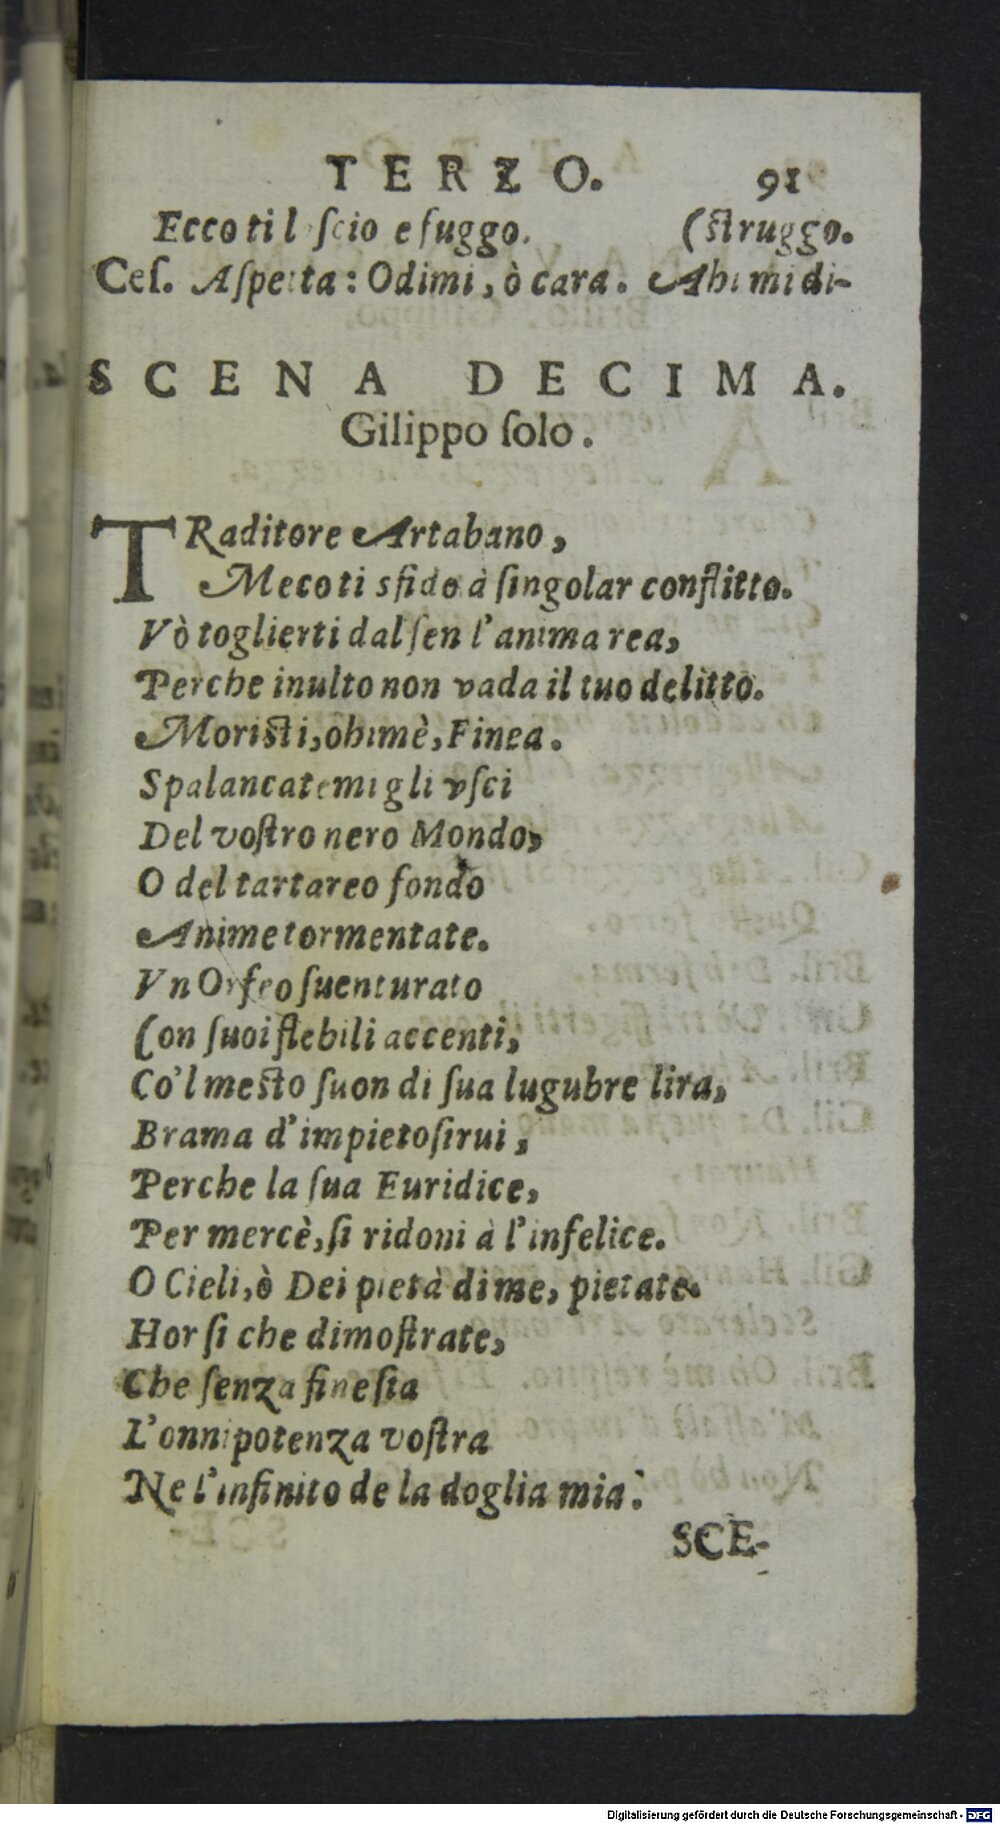 TERZO. 91
Ecco ti lſcio e fuggo. (ſtruggo.
Ceſ. Aſpetta: Odimi, ò cara. Ahi mi di-
SCENA DECIMA.
Gilippo ſolo.
TRaditore Artabano,
Meco ti sfido à ſingolar conflitto.
Vò toglierti dal ſen l'anima rea,
Perche inulto non vada il tuo delitto.
Moriſti, ohimè, Finea.
Spalancatemi gli vſci
Del voſtro nero Mondo,
O del tartareo fondo
Anime tormentate.
Vn Orfeo ſuenturato
Con ſuoi flebili accenti,
Co'l meſto ſuon di ſua lugubre lira,
Brama d'impietoſirui,
Perche la ſua Euridice,
Per mercè, ſi ridoni à l'infelice.
O Cieli, ò Dei pietà di me, pietate.
Hor ſi che dimoſtrate,
Che ſenza fine ſia
L'onnipotenza voſtra
Ne l'infinito de la doglia mia.
SCE-
Digitalisierung gefördert durch die Deutsche Forschungsgemeinschaft - DFG